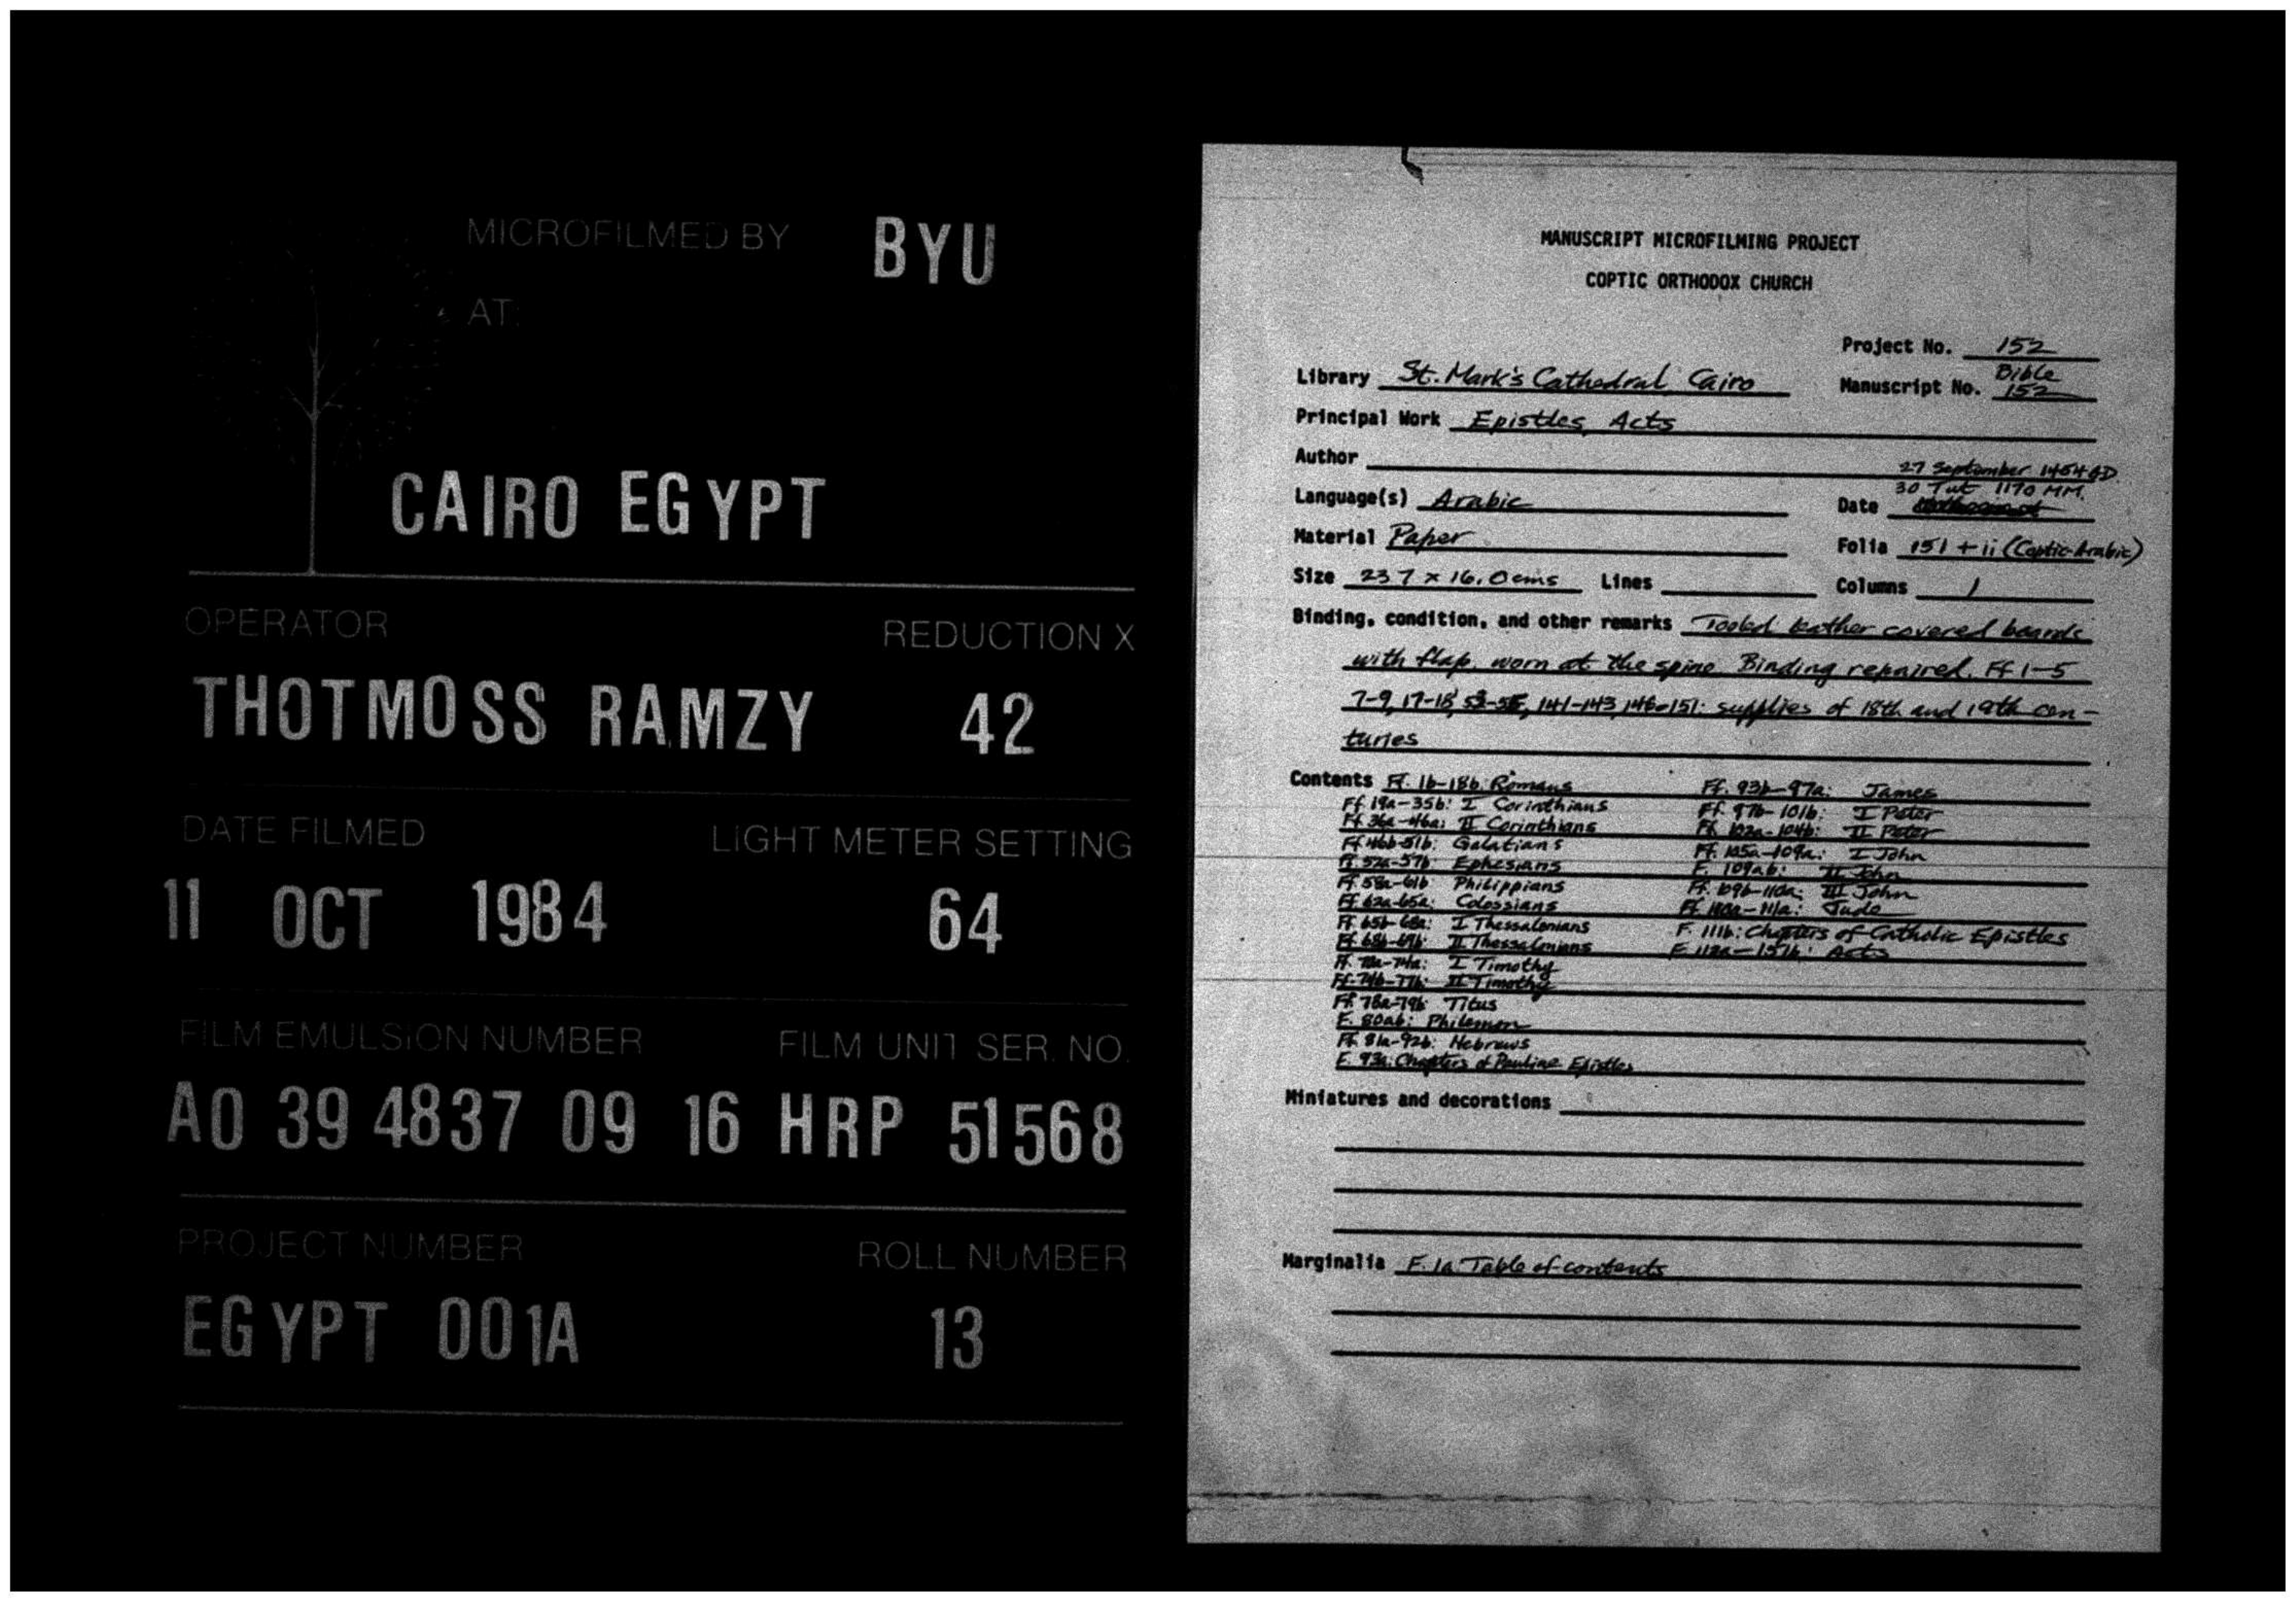 MICROFILMED BY BYU
AT:
CAIRO EGYPT
OPERATOR REDUCTION X
THOTMOSS RAMZY 42
DATE FILMED LIGHT METER SETTING
11 OCT 1984 64
FILM EMULSION NUMBER FILM UNIT SER. NO.
A0 39 4837 09 16 HRP 51568
PROJECT NUMBER ROLL NUMBER
EGYPT 001A 13
MANUSCRIPT MICROFILMING PROJECT
COPTIC ORTHODOX CHURCH
Project No. 152
Library St. Mark's Cathedral, Cairo
Bible
Manuscript No. 152
Principal Work Epistles, Acts
Author
27 September 1454 AD.
30 Tut 1170 MM.
Language(s) Arabic Date
Material Paper Folia 151 + ii (Coptic-Arabic)
Size 23.7 x 16.0 cms Lines Columns 1
Binding, condition, and other remarks Tooled leather covered boards
with flap, worn at the spine. Binding repaired. Ff 1-5
7-9, 17-18, 141-143, 146-151: supplies of 18th and 19th cen-
turies
Contents Ff. 1b-18b: Romans
Ff. 19a-35b: I Corinthians
Ff. 36a-46a: II Corinthians
Ff. 46b-51b: Galatians
Ff. 52a-57b: Ephesians
Ff. 58a-61b: Philippians
Ff. 62a-65a: Colossians
Ff. 65b-68a: I Thessalonians
Ff. 68b-69b: II Thessalonians
Ff. 70a-74a: I Timothy
Ff. 74b-77b: II Timothy
Ff. 78a-79b: Titus
F. 80ab: Philemon
Ff. 81a-92b: Hebrews
F. 93a: Chapters of Pauline Epistles
Ff. 93b-97a: James
Ff. 97b-101b: I Peter
Ff. 102a-104b: II Peter
Ff. 105a-109a: I John
F. 109ab: II John
Ff. 109b-110a: III John
Ff. 110a-111a: Jude
F. 111b: Chapters of Catholic Epistles
F. 112a-151b: Acts
Miniatures and decorations
Marginalia F. 1a: Table of contents